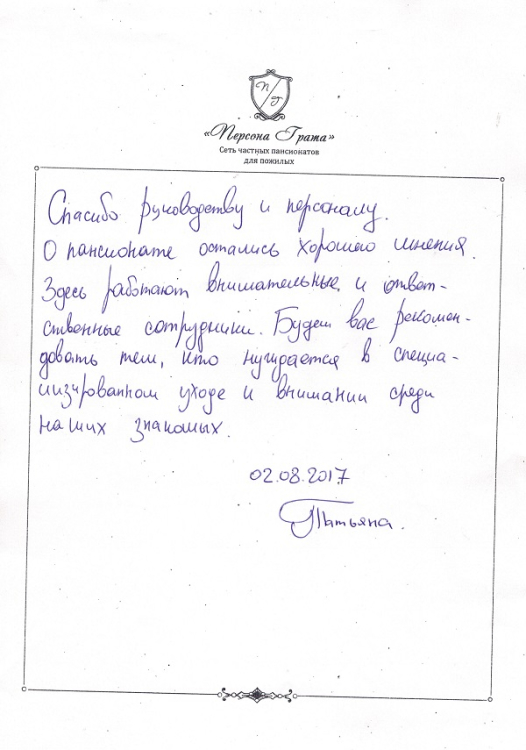 П Г
«Персона Грата»
Сеть частных пансионатов
для пожилых
Спасибо руководству и персоналу.
О пансионате остались хорошего мнения.
Здесь работают внимательные и ответ-
ственные сотрудники. Будем вас рекомен-
довать тем, кто нуждается в специа-
лизированном уходе и внимании среди
наших знакомых.
02.08.2017
Татьяна.